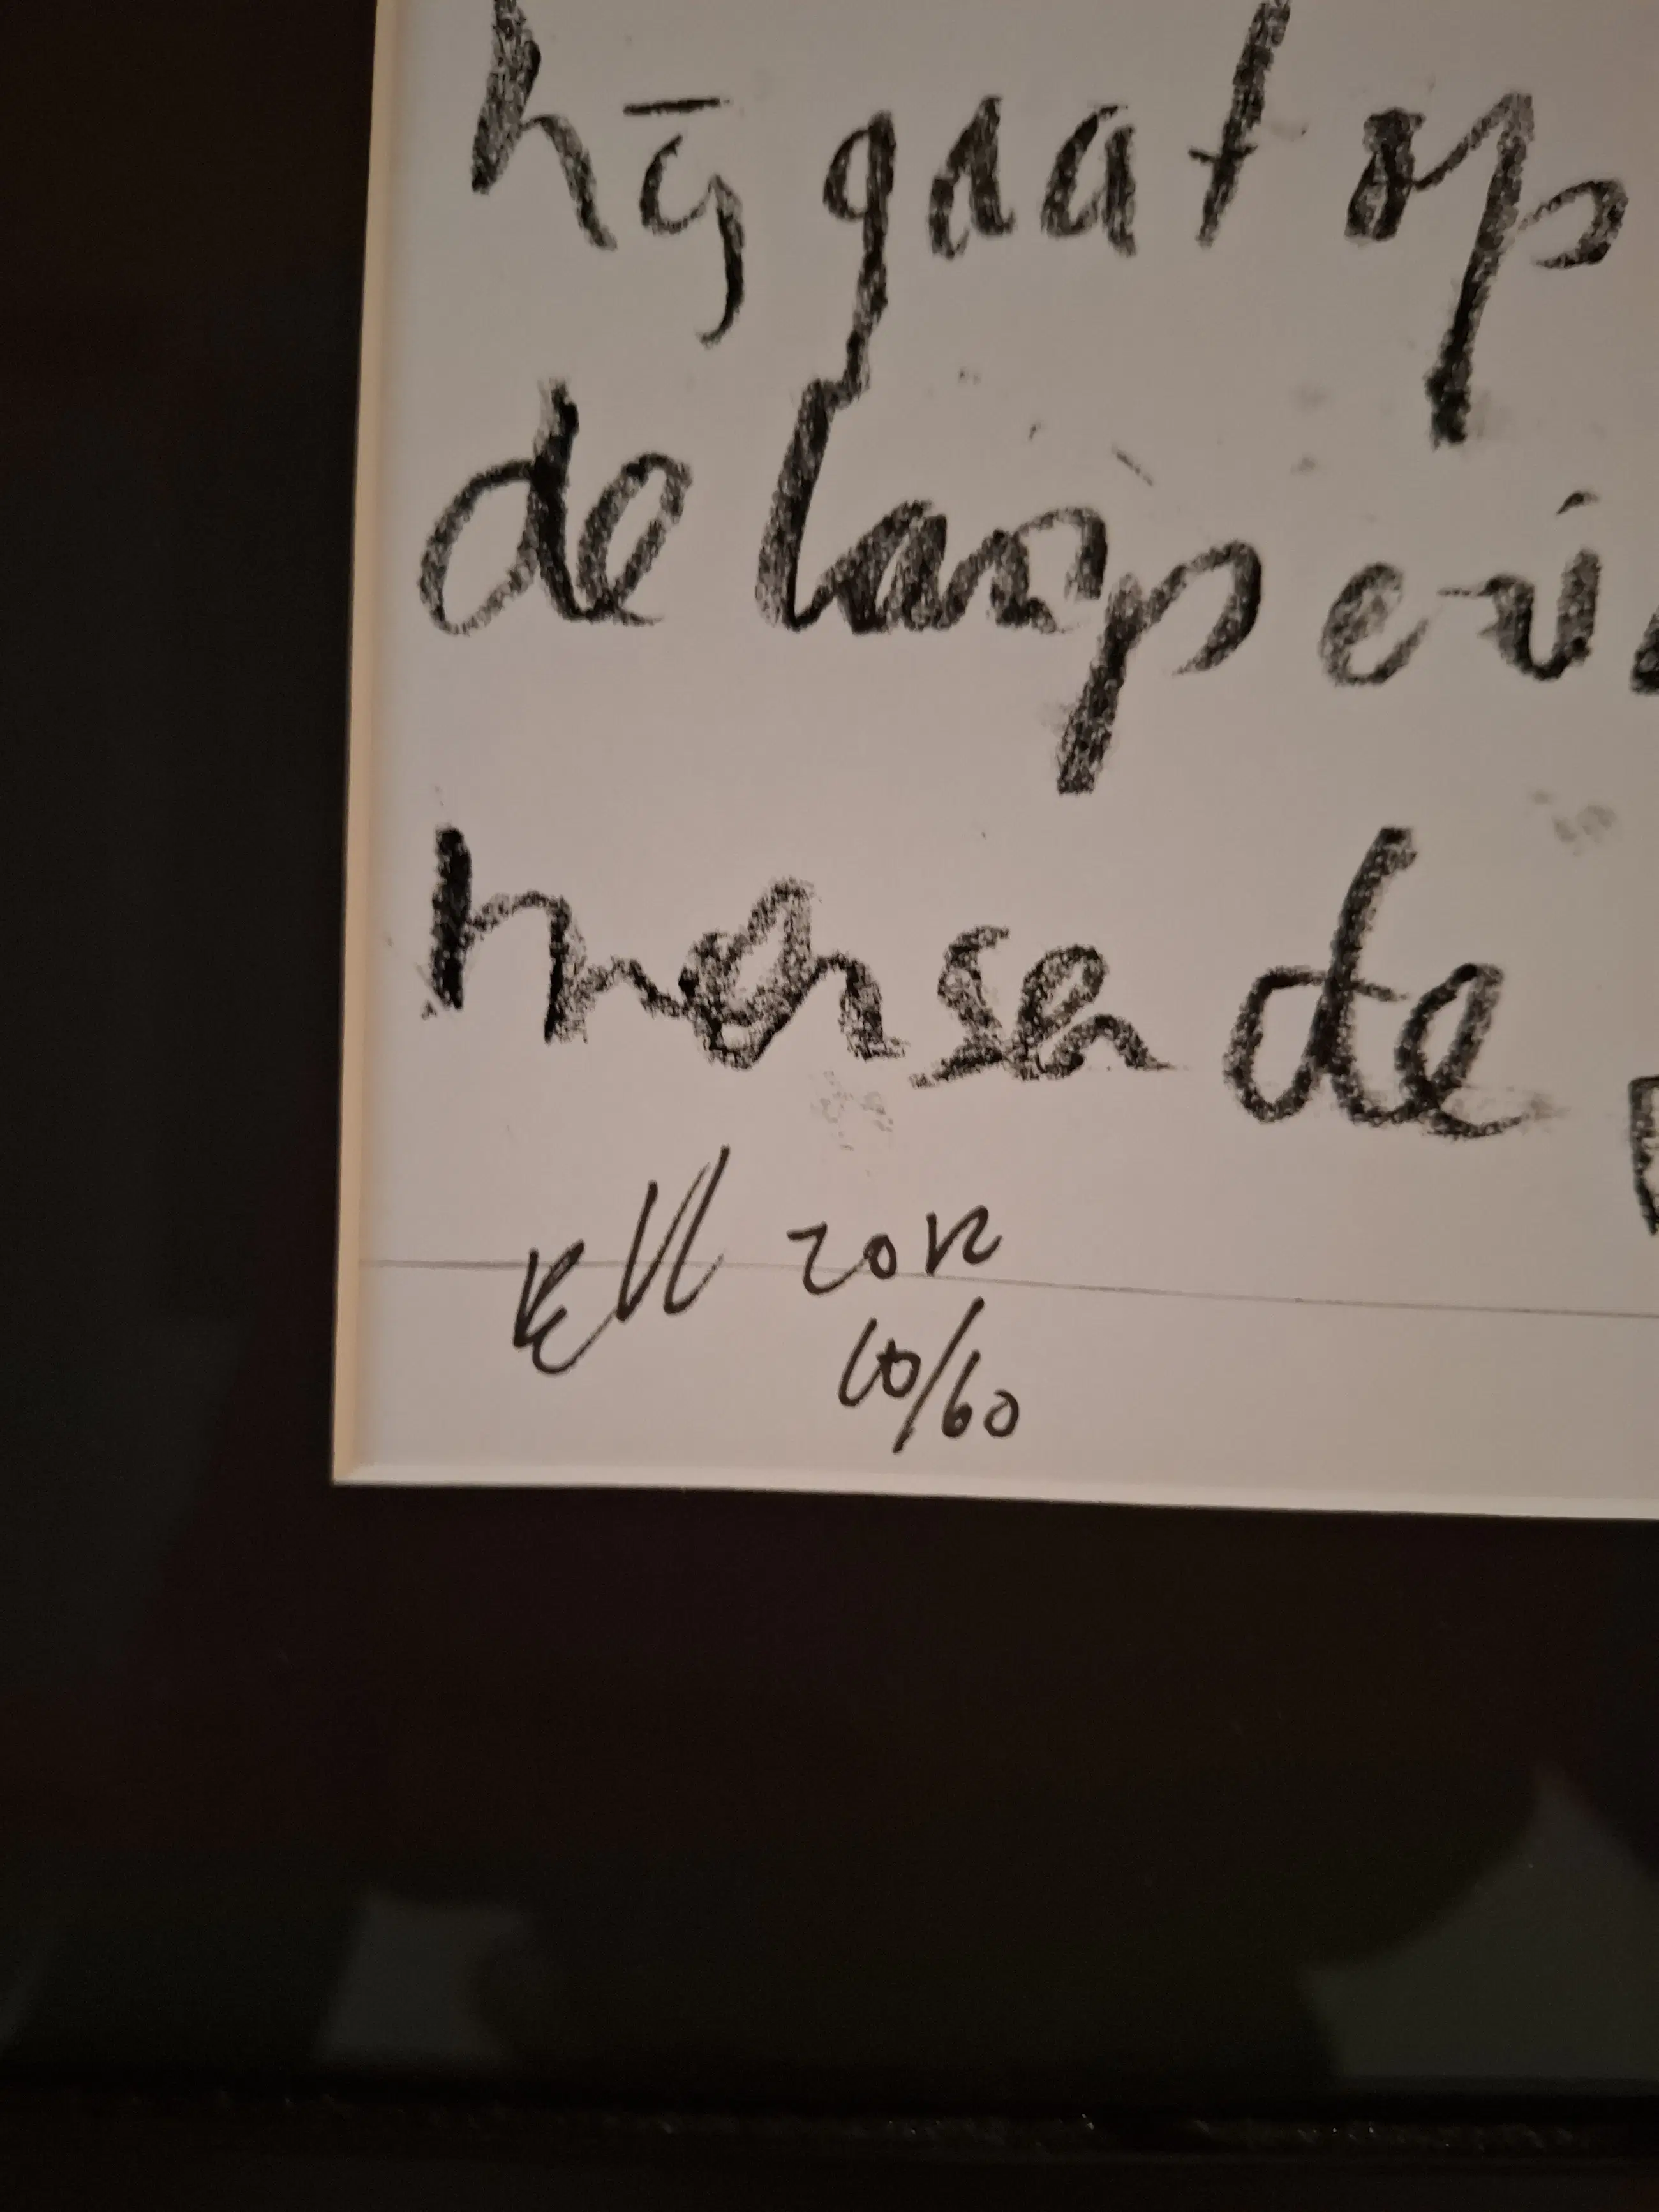 hij gaat op
de lamp en
mensen de
2012
10/60